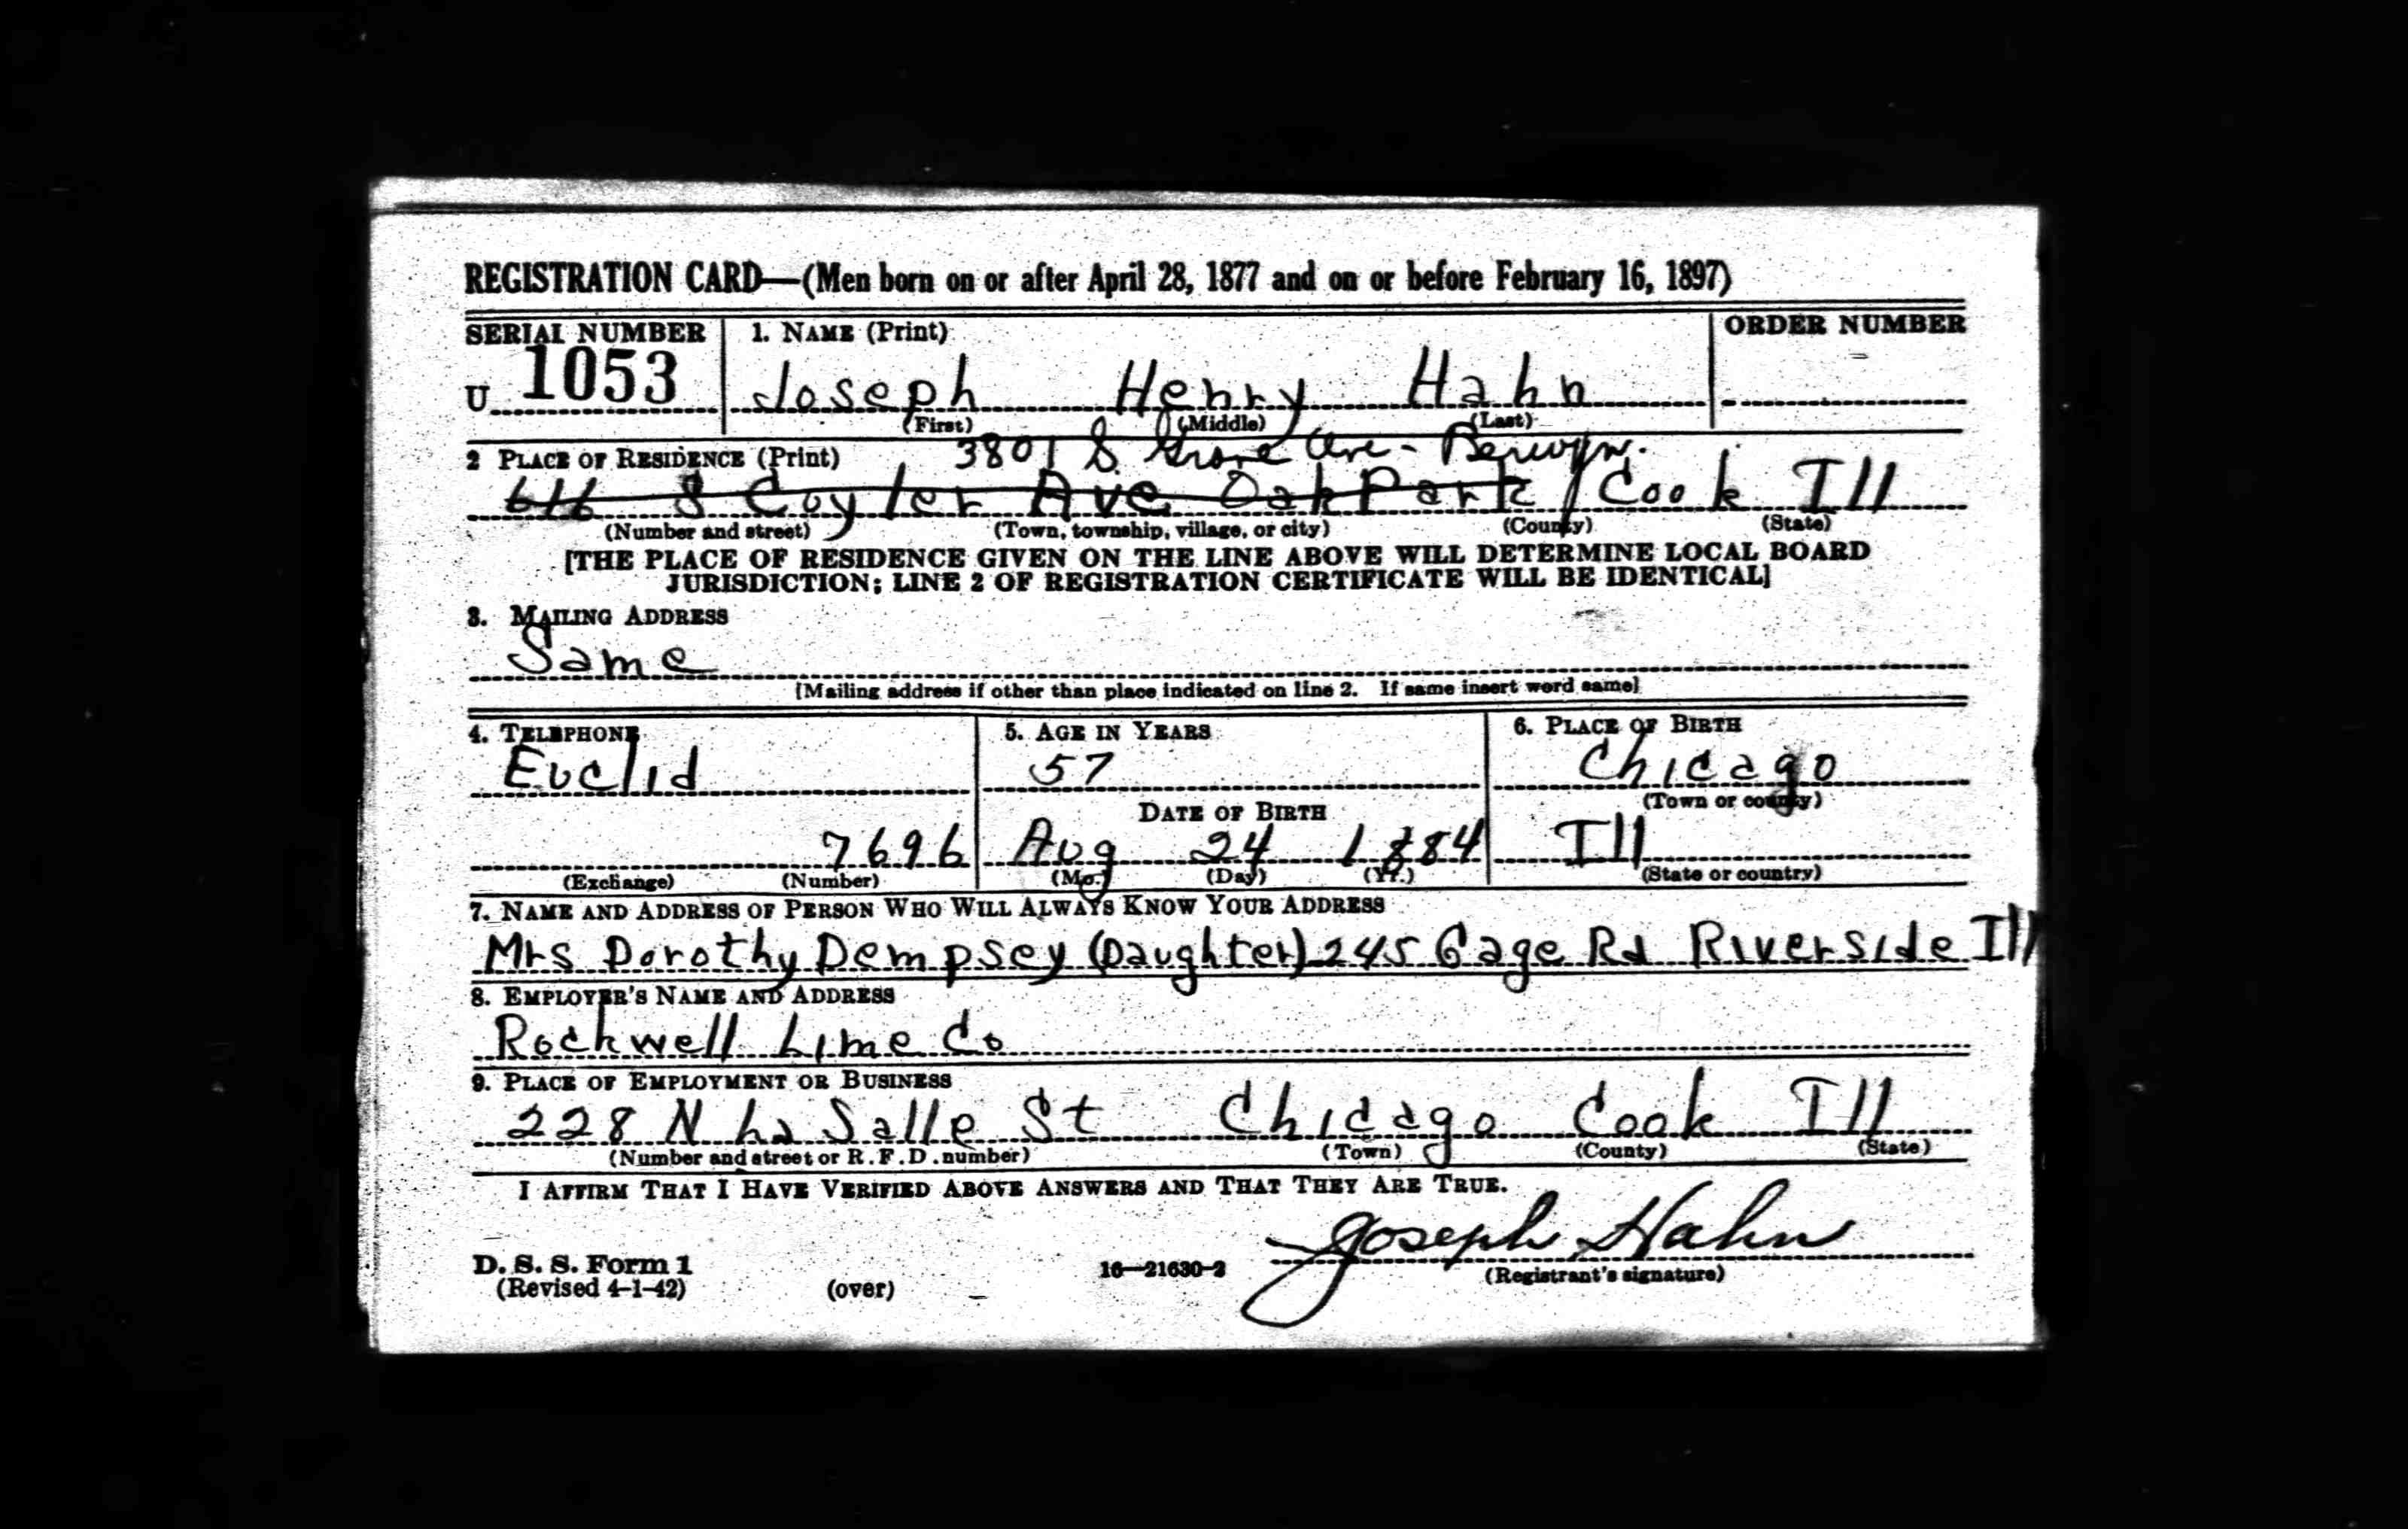 REGISTRATION CARD—(Men born on or after April 28, 1877 and on or before February 16, 1897)
SERIAL NUMBER 1. NAME (Print) ORDER NUMBER
U 1053 Joseph Henry Hahn
(First) (Middle) (Last)
2 PLACE OF RESIDENCE (Print) 3801 S. Grove Ave - Berwyn.
616 S Coyler Ave Oak Park / Cook Ill
(Number and street) (Town, township, village, or city) (County) (State)
[THE PLACE OF RESIDENCE GIVEN ON THE LINE ABOVE WILL DETERMINE LOCAL BOARD
JURISDICTION; LINE 2 OF REGISTRATION CERTIFICATE WILL BE IDENTICAL]
3. MAILING ADDRESS
Same
[Mailing address if other than place indicated on line 2. If same insert word same]
4. TELEPHONE 5. AGE IN YEARS 6. PLACE OF BIRTH
Euclid 57 Chicago
DATE OF BIRTH (Town or county)
7696 Aug 24 1884 Ill
(Exchange) (Number) (Mo.) (Day) (Yr.) (State or country)
7. NAME AND ADDRESS OF PERSON WHO WILL ALWAYS KNOW YOUR ADDRESS
Mrs Dorothy Dempsey (Daughter) 245 Gage Rd Riverside Ill
8. EMPLOYER'S NAME AND ADDRESS
Rockwell Lime Co
9. PLACE OF EMPLOYMENT OR BUSINESS
228 N La Salle St Chicago Cook Ill
(Number and street or R.F.D. number) (Town) (County) (State)
I AFFIRM THAT I HAVE VERIFIED ABOVE ANSWERS AND THAT THEY ARE TRUE.
Joseph Hahn
D. S. S. Form 1 16—21630-2 (Registrant's signature)
(Revised 4-1-42) (over)